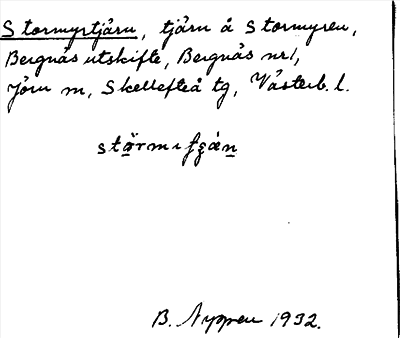 Stormyrtjärn, tjärn å Stormyren,
Bergnäs utskifte, Bergnäs nr 1,
Jörn m, Skellefteå tg, Västerb. l.
B. Nyppen 1932.